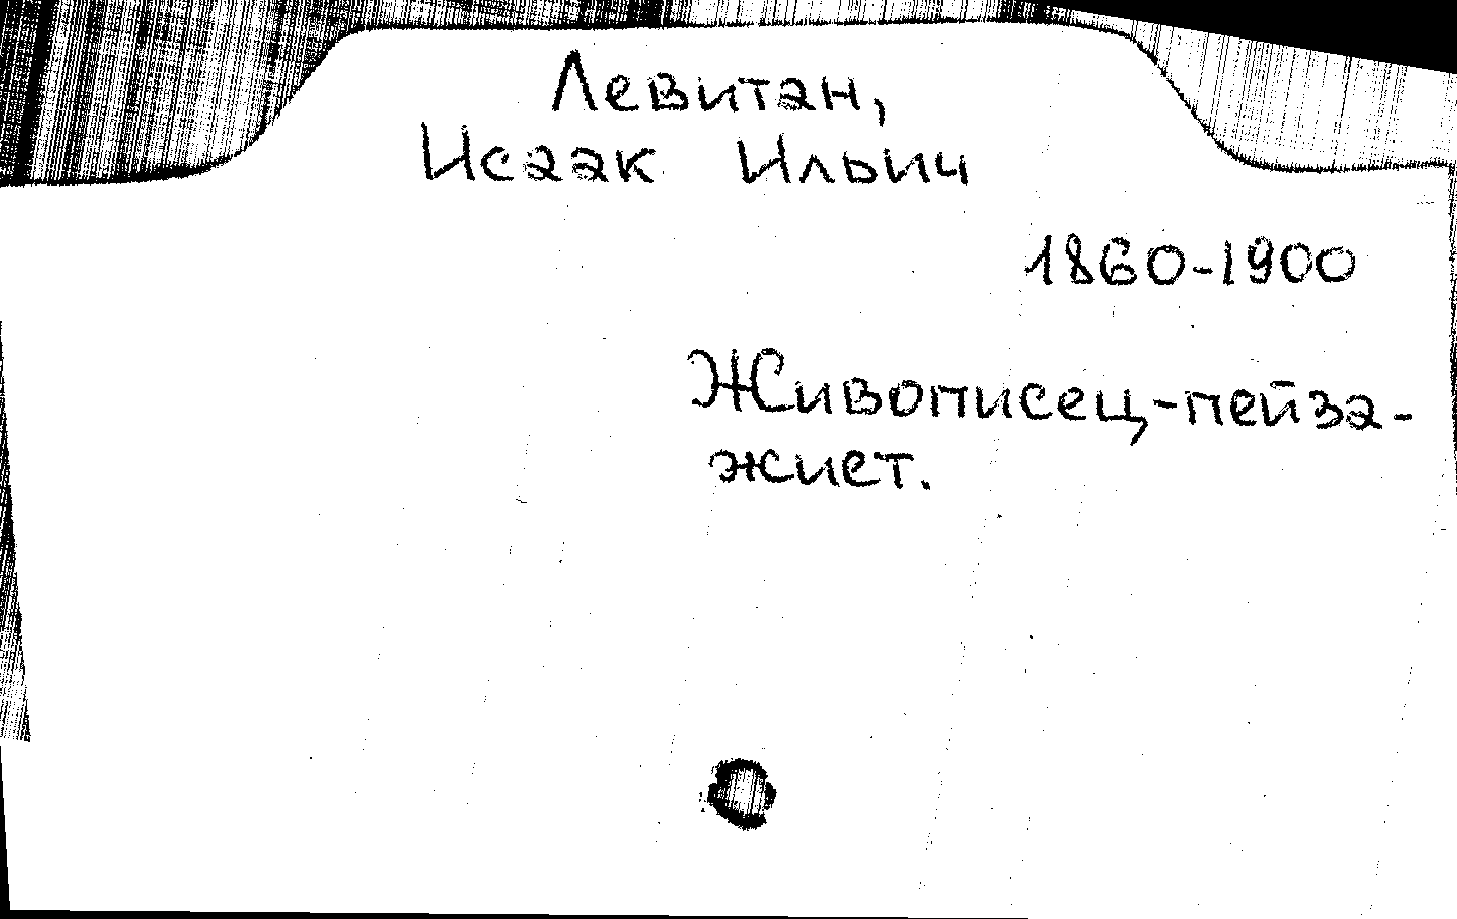 Левитан,
Исаак Ильич
1860-1900
Живописец-пейза-
жист.